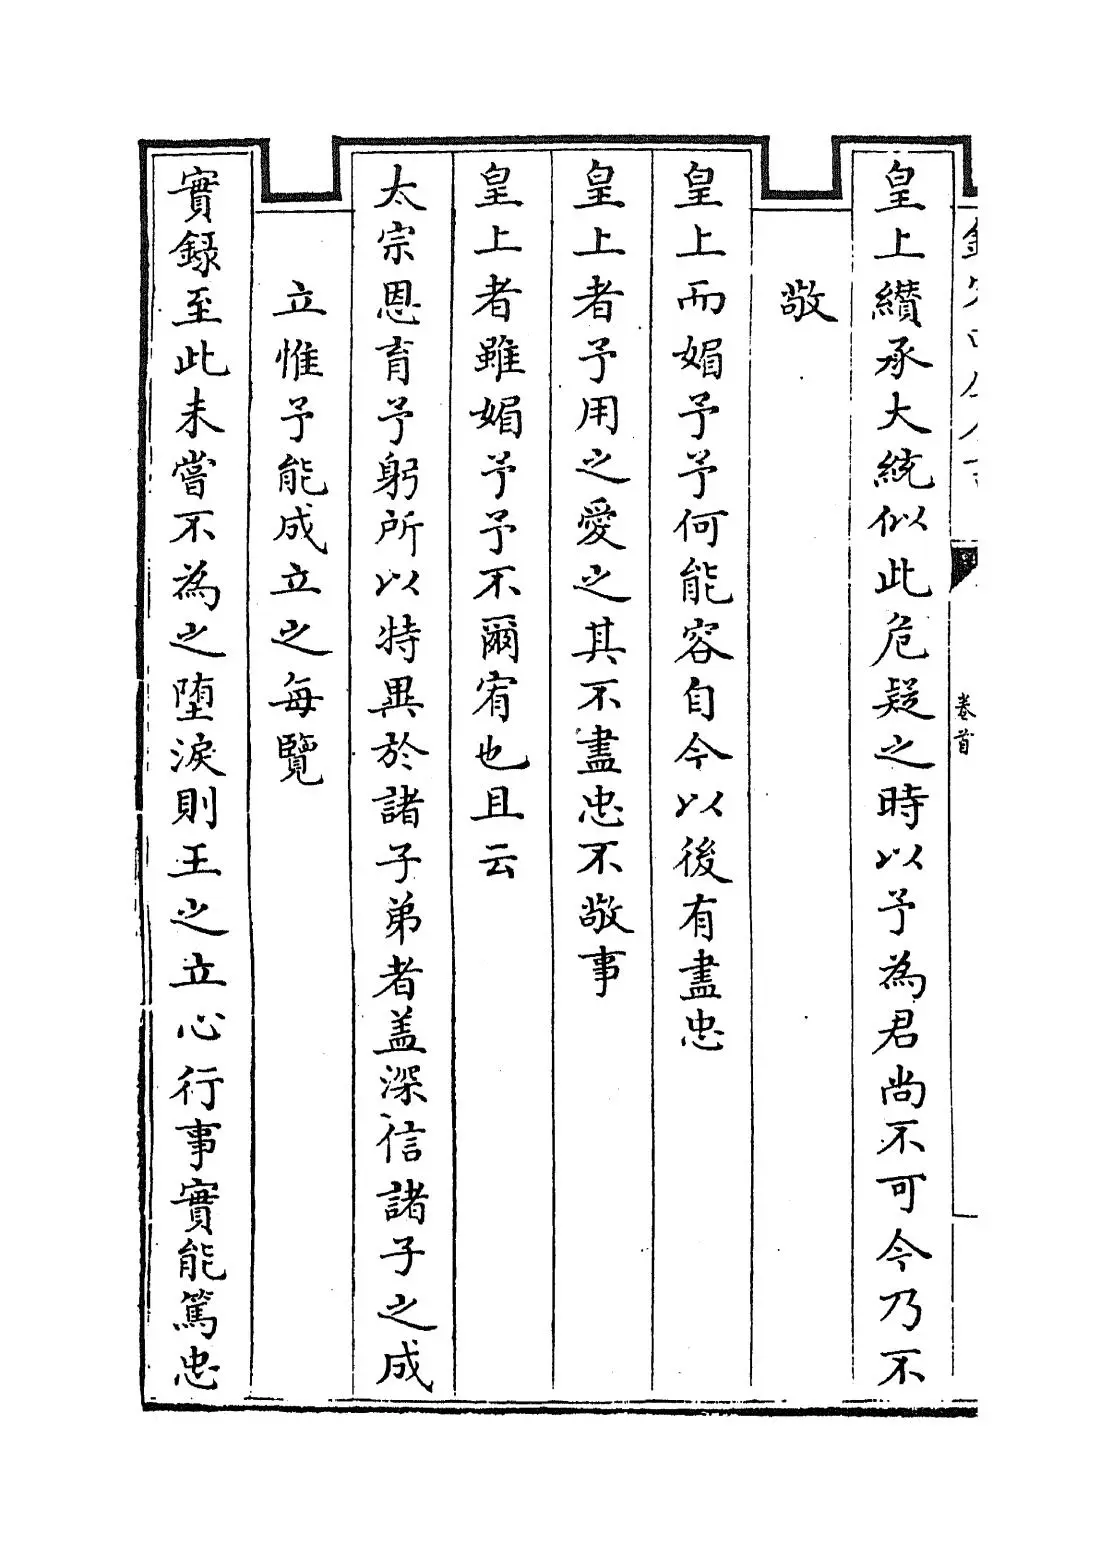 皇上纘承大統似此危疑之時以予為君尚不可今乃不
敬
皇上而媚予予何能容自今以後有盡忠
皇上者予用之愛之其不盡忠不敬事
皇上者雖媚予予不爾宥也且云
太宗恩育予躬所以特異於諸子弟者盖深信諸子之成
立惟予能成立之每覽
實録至此未嘗不為之堕淚則王之立心行事實能篤忠
卷首